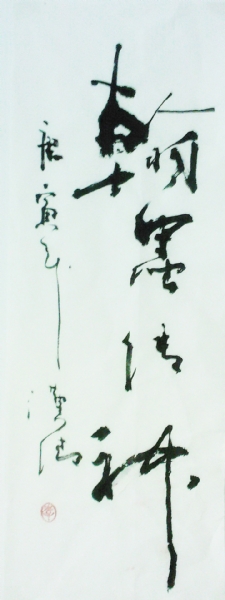 翰墨傳神
庚寅年